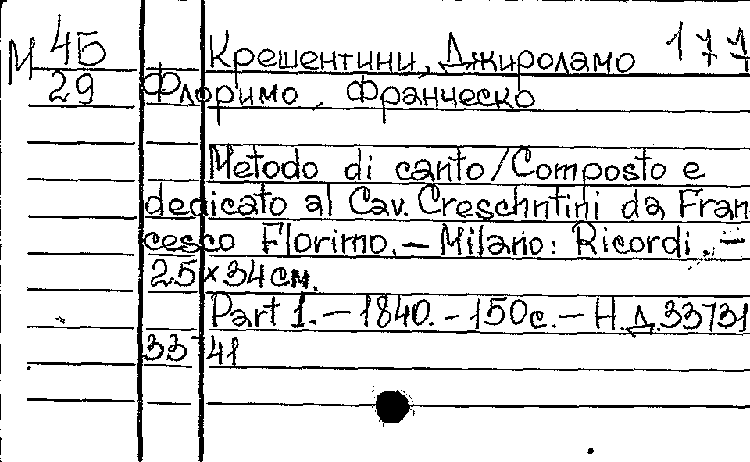 М 45 Крешентини, Джироламо 177
29 Флоримо, Франческо
Metodo di canto/Composto e
dedicato al Cav. Creschntini da Fran
cesco Florimo.— Milano: Ricordi.—
25×34см.
Part 1.—1840.-150с.—Н.Д.33731
33741